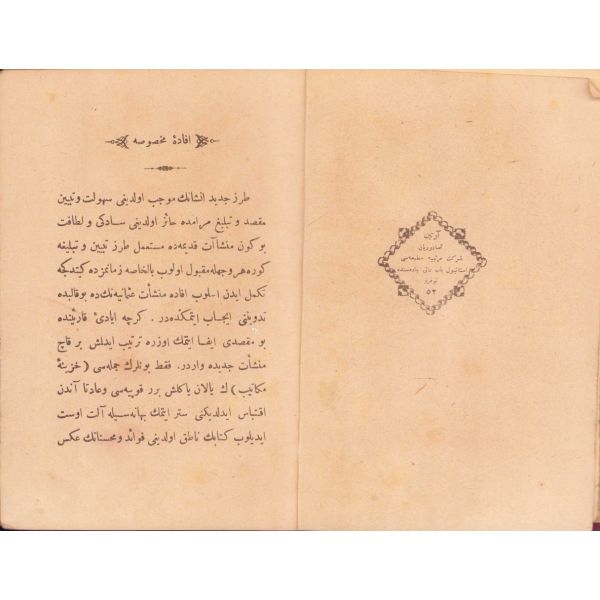 آرتین
آصادوریان
شركت مرتبیه مطبعه‌سی
استانبول باب عالی جاده‌سنده
نومرو
٥٢
افادهٔ مخصوصه
طرز جدید انشانك موجب اولدیغی سهولت و تبیین
مقصد و تبلیغ مرامده حائز اولدیغی سادكی و لطافت
بو كون منشآت قدیمه‌ده مستعمل طرز تبیین و تبلیغه
كوره هر وجهله مقبول اولوب بالخاصه زمانمزده كیتدكجه
تكمل ایدن اسلوب افاده منشأت عثمانیه‌نك ده بو قالبده
تدویننی ایجاب ایتمكده‌در. كرچه ایادئ قارئینده
بو مقصدی ایفا ایتمك اوزره ترتیب ایدلش بر قاچ
منشأت جدیده واردر. فقط بونلرك جمله‌سی (خزینهٔ
مكاتیب) ك یالان یاكلش برر قوپیه‌سی وعادتا آندن
اقتباس ایدلدیكنی ستر ایتمك بهانه‌سیله آلت اوست
ایدیلوب كتابك ناطق اولدیغی فوائد و محسناتك عكس